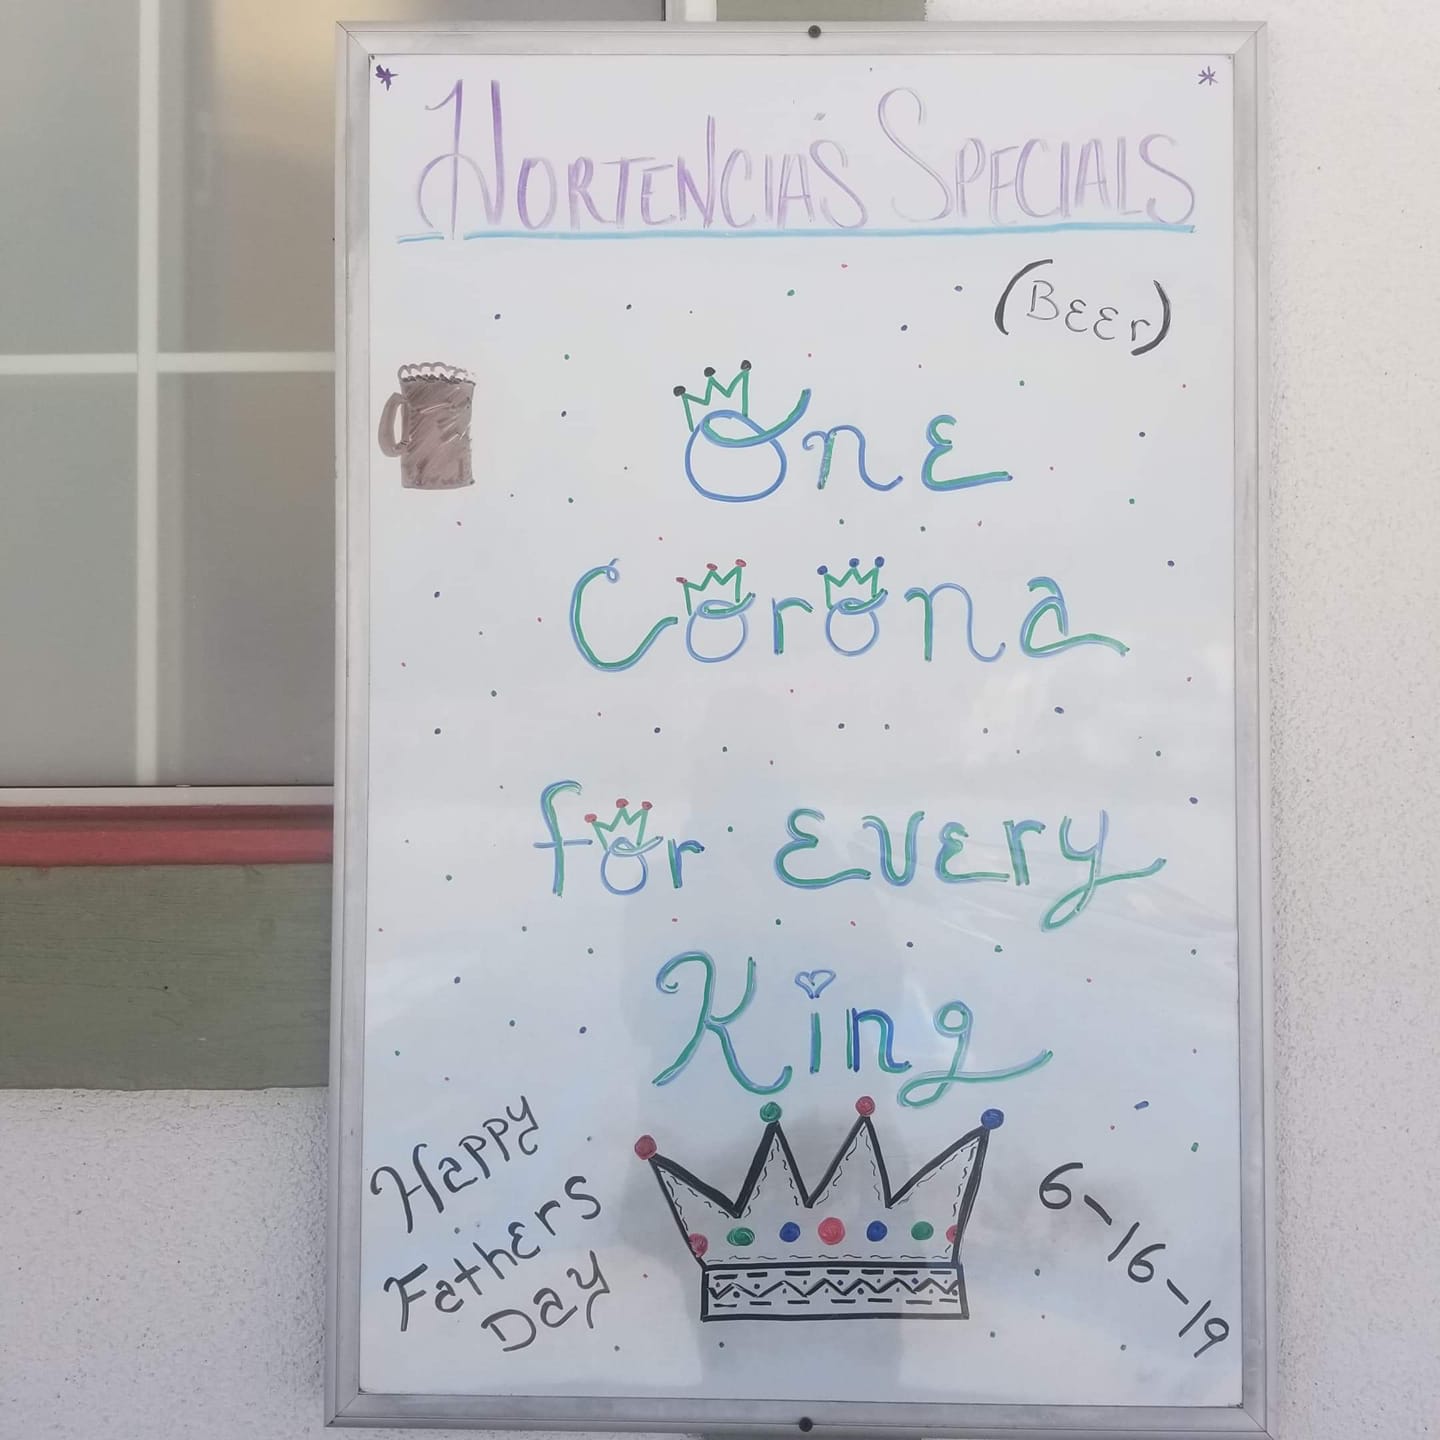 HORTENCIA'S SPECIALS
(BEEr)
One
Corona
for Every
King
Happy
Fathers
Day
6-16-19